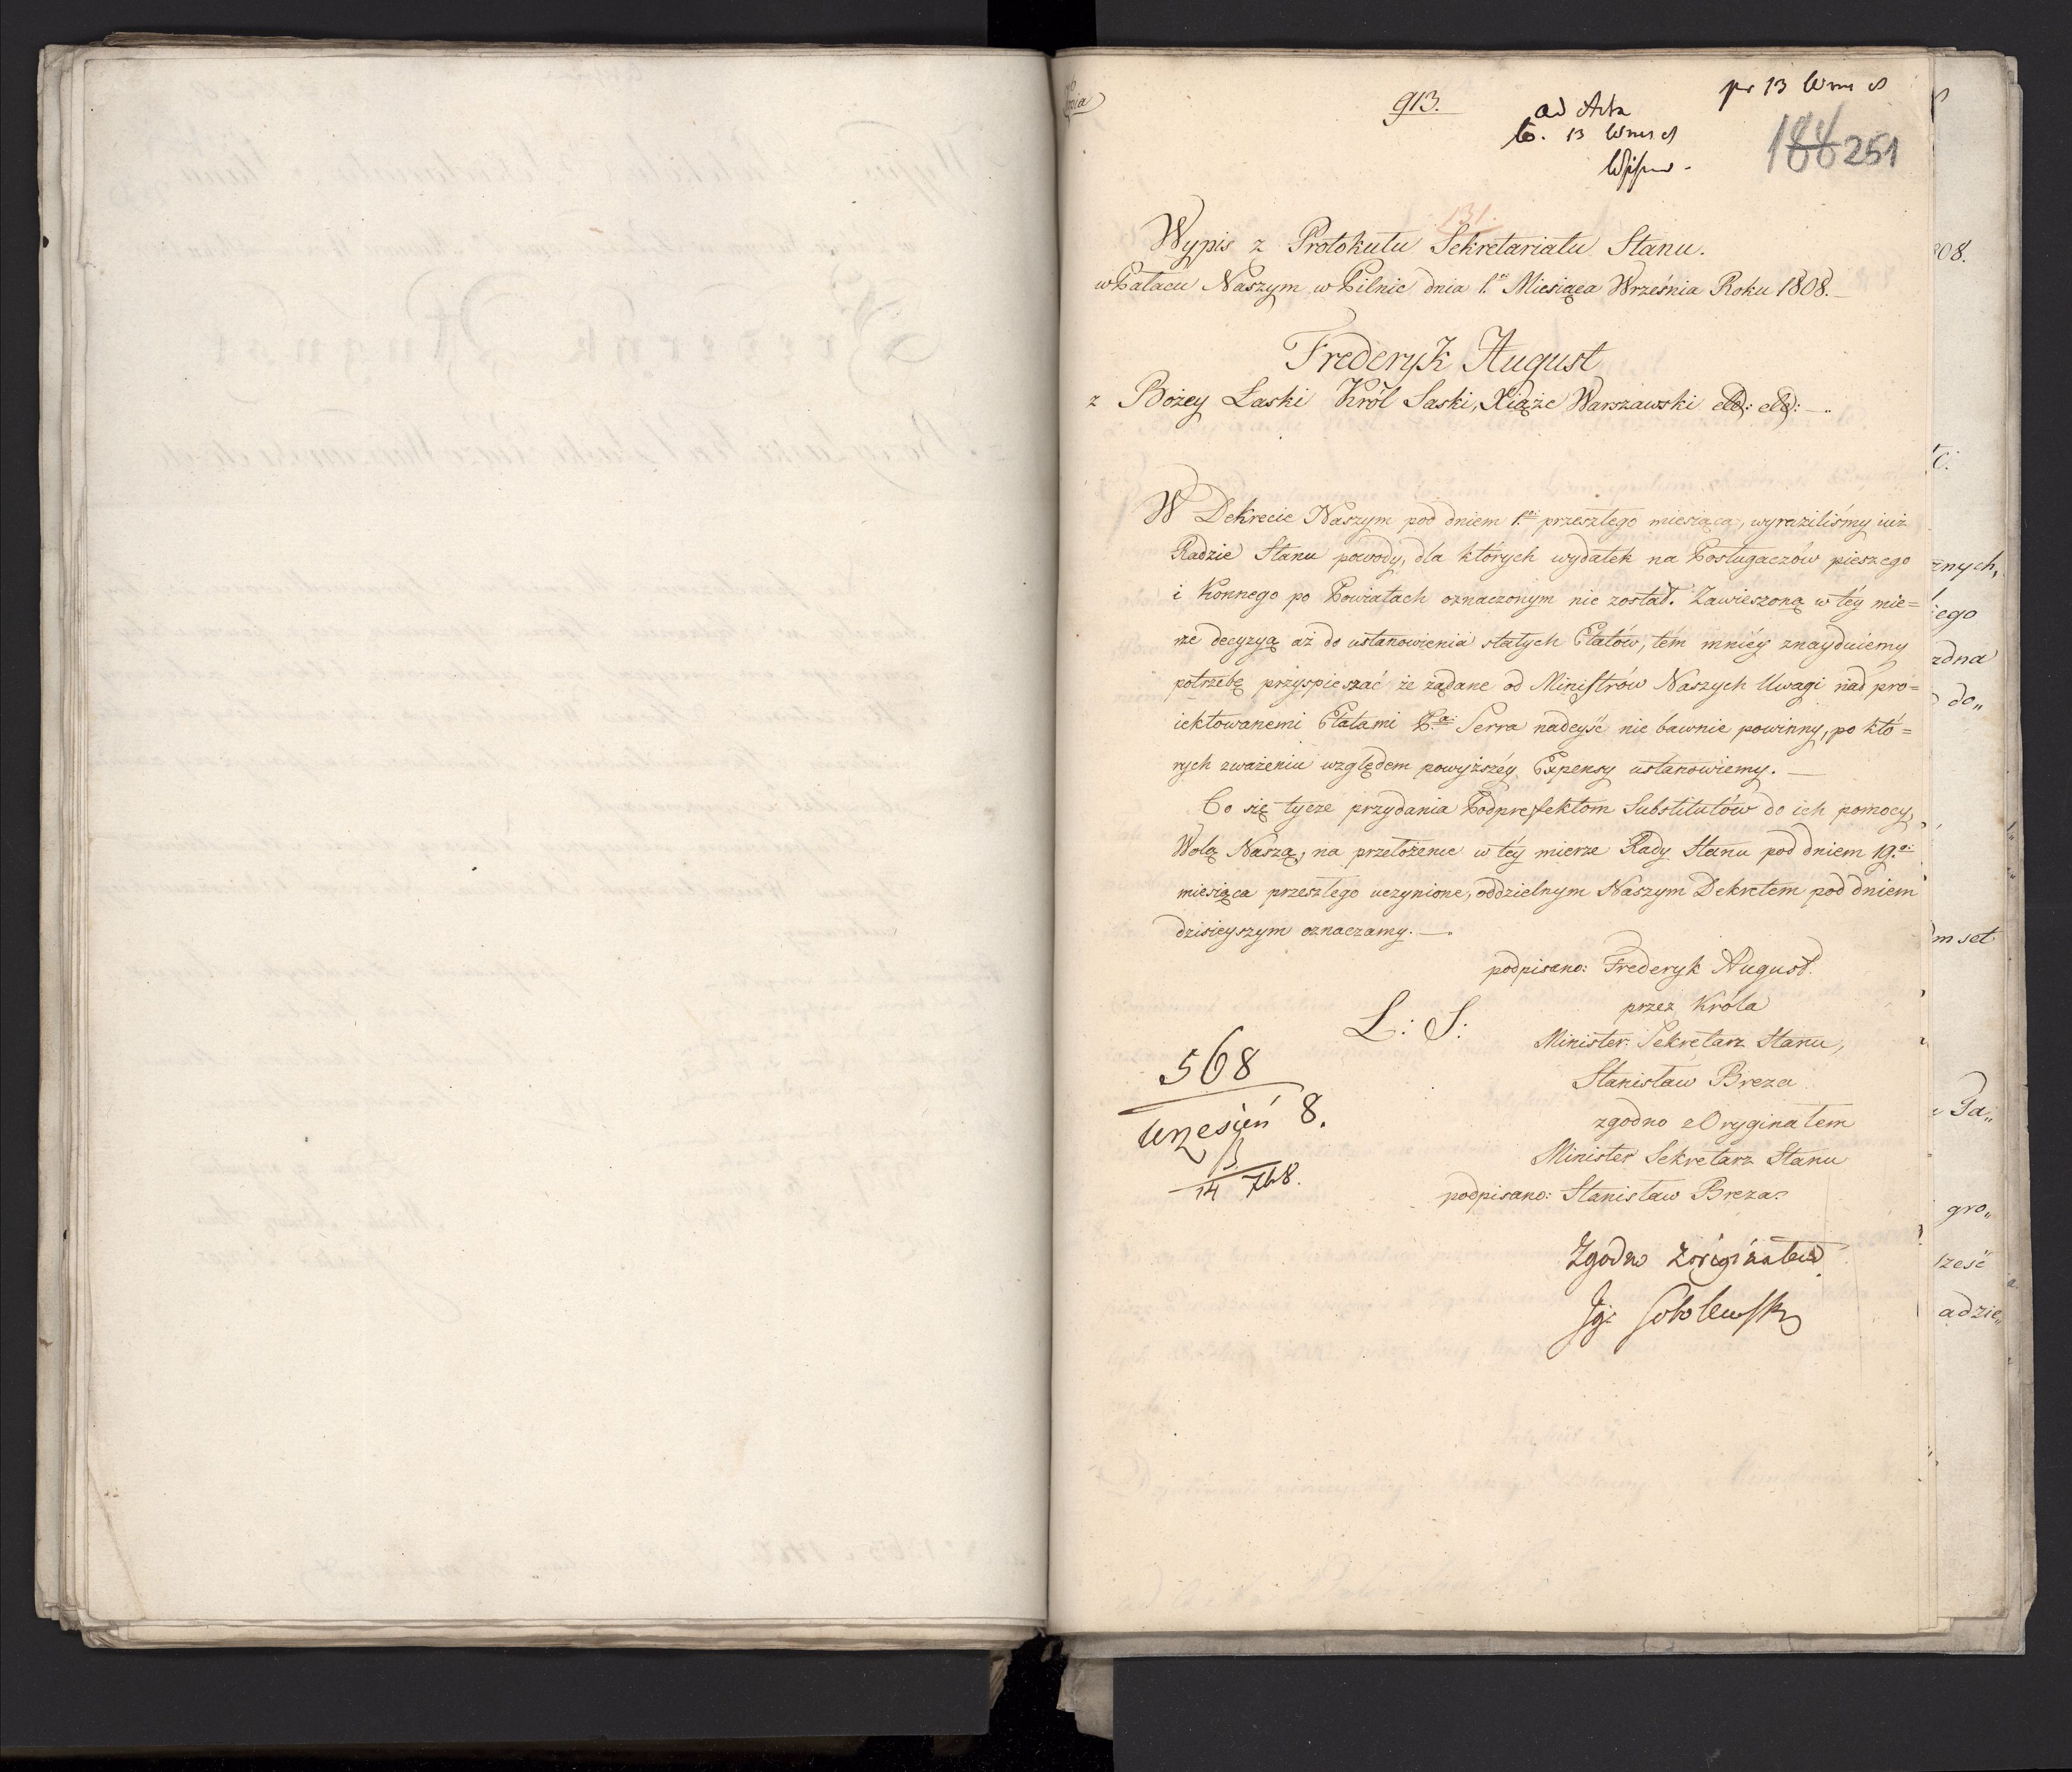 913.
pr 13 Wrn
ad Acta
13
188 251
131.
Wypis z Protokułu Sekretariatu Stanu.
w Pałacu Naszym w Pilnic dnia 1. Miesiąca Września Roku 1808.
Frederyk August
z Bożey Łaski Król Saski, Xiąże Warszawski etc: etc: —
W Dekrecie Naszym pod dniem 1. przeszłego miesiąca, wyraziliśmy iuż
Radzie Stanu powody, dla których wydatek na Posługaczów pieszego
i Konnego po Powiatach oznaczonym nie został. Zawieszoną w téy mie=
rze decyzyą aż do ustanowienia stałych Etatów, tém mniéy znayduiemy
potrzebę przyspieszać że żądane od Ministrów Naszych Uwagi nad pro=
iektowanemi Etatami Serra nadeyść nie bawnie powinny, po któ=
rych zważeniu względem powyższéy Expensy ustanowiemy. —
Co się tycze przydania Podprefektom Substitutów do ich pomocy,
Wolą Naszą, na przełożenie w téy mierze Rady Stanu pod dniem 19.
miesiąca przeszłego uczynione, oddzielnym Naszym Dekretem pod dniem
dzisieyszym oznaczamy. —
podpisano: Frederyk August.
przez Króla
L: S:
Minister Sekretarz Stanu,
Stanisław Breza
zgodno z Oryginałem
Minister Sekretarz Stanu
podpisano: Stanisław Breza
568
Wrzesień 8.
14 768.
Zgodno z origináłem
Ig: Sobolewski
808.
znych,
iego
zdna
do„
m set
Ga„
gro„
sześć
adzie„